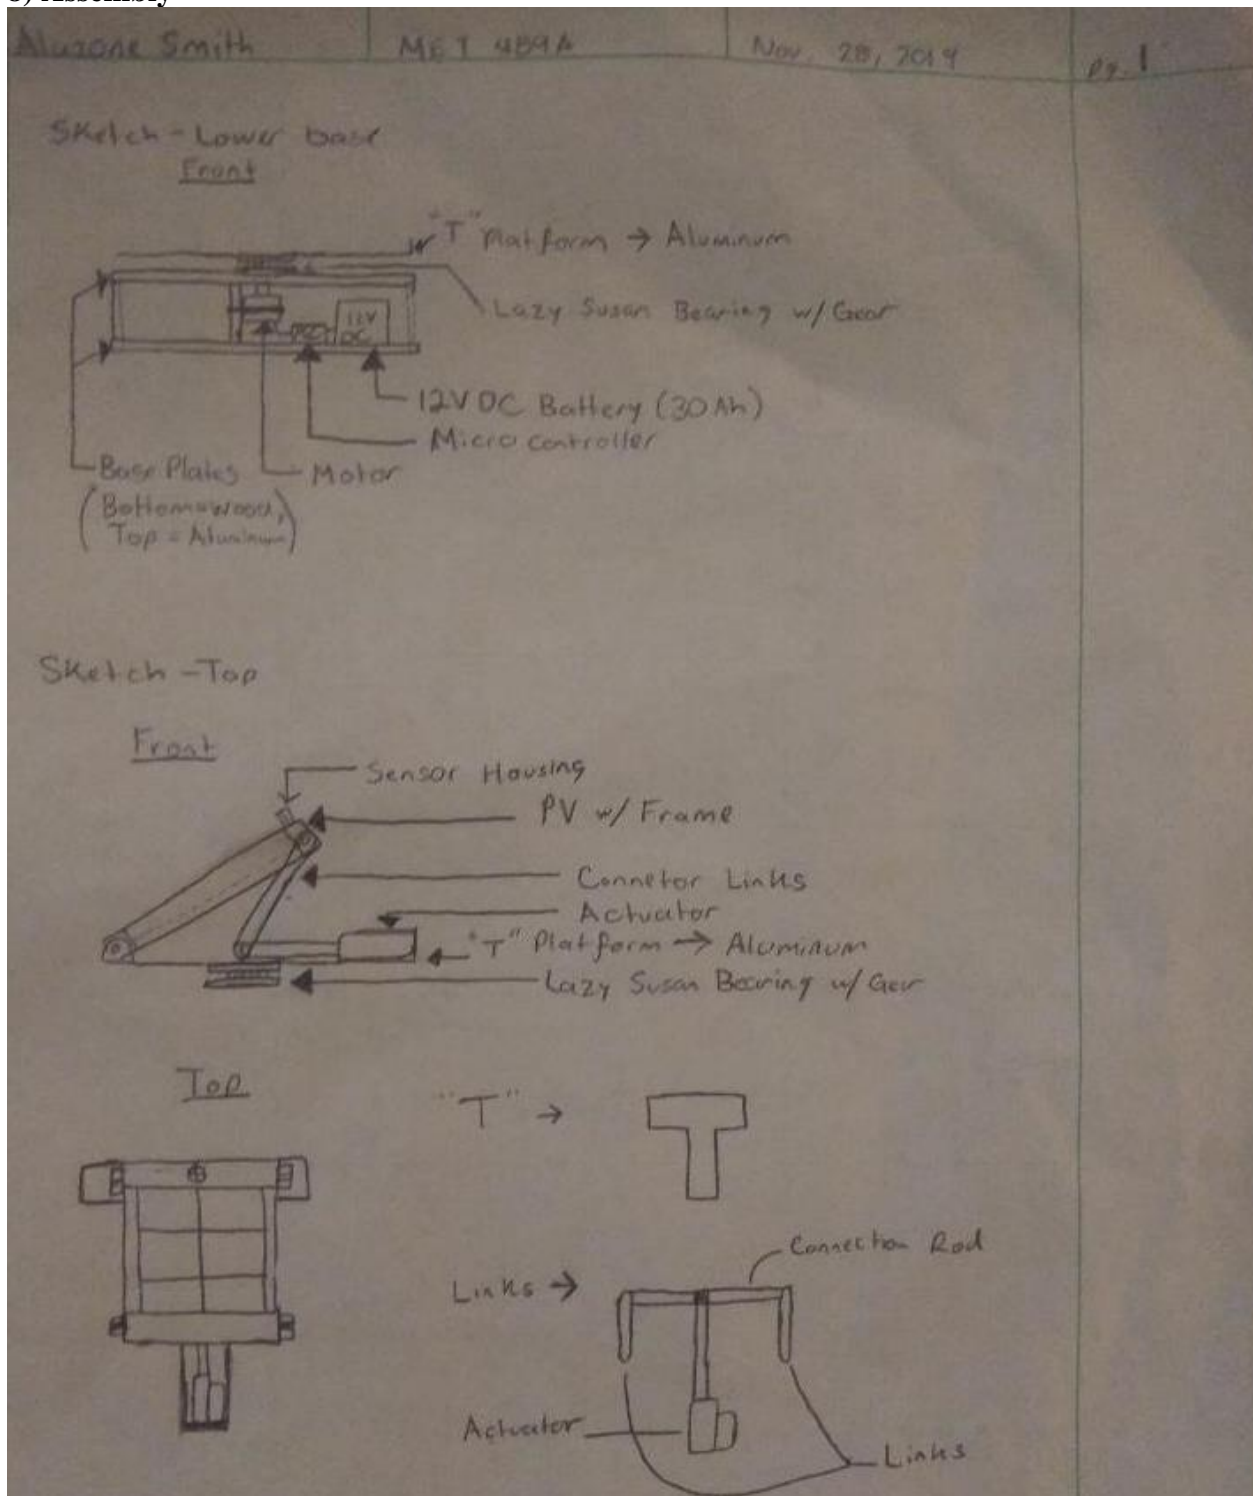 Aluzone Smith MET 489A Nov. 28, 2019 pg. 1
Sketch - Lower base
Front
"T" Platform → Aluminum
Lazy Susan Bearing w/ Gear
12V
DC
12V DC Battery (30 Ah)
Micro controller
Base Plates
Motor
(Bottom = wood,
Top = Aluminum)
Sketch - Top
Front
Sensor Housing
PV w/ Frame
Connetor Links
Actuator
"T" Platform → Aluminum
Lazy Susan Bearing w/ Gear
Top
"T" →
Connection Rod
Links →
Actuator
Links